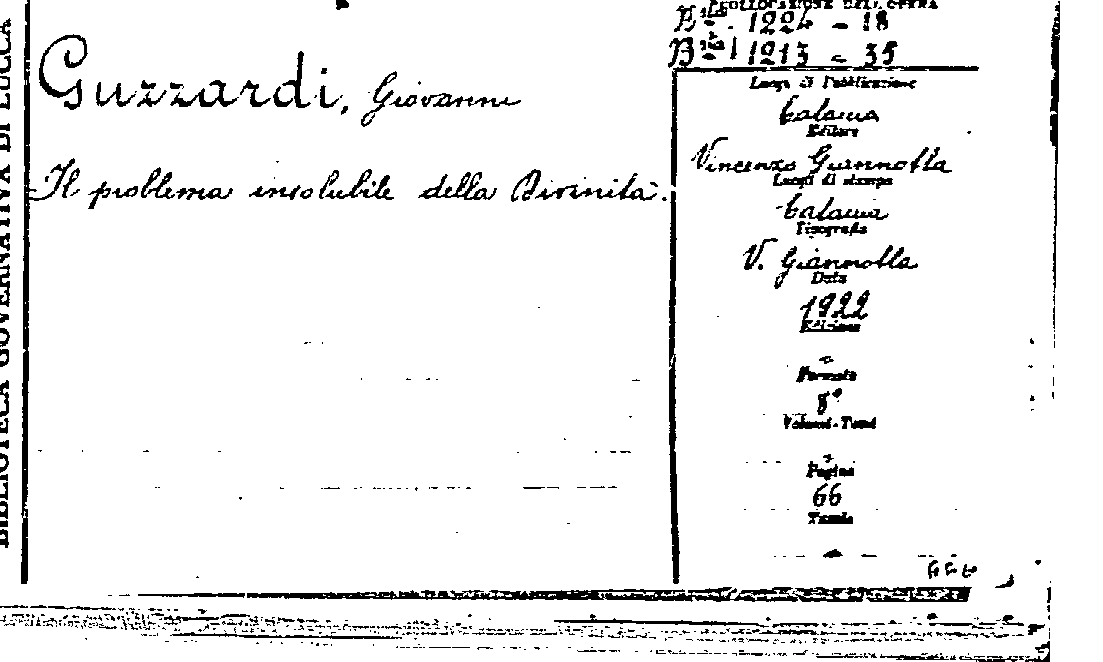 BIBLIOTECA GOVERNATIVA DI LUCCA
Guzzardi, Giovanni
Il problema insolubile della Divinità.
COLLOCAZIONE DELL'OPERA
1224 - 18
1213 - 35
Luogo di Pubblicazione
Catania
Editore
Vincenzo Giannotta
Luogo di stampa
Catania
Tipografia
V. Giannotta
Data
1922
Edizione
Formato
8°
Volumi-Tomi
Pagine
66
Tavole